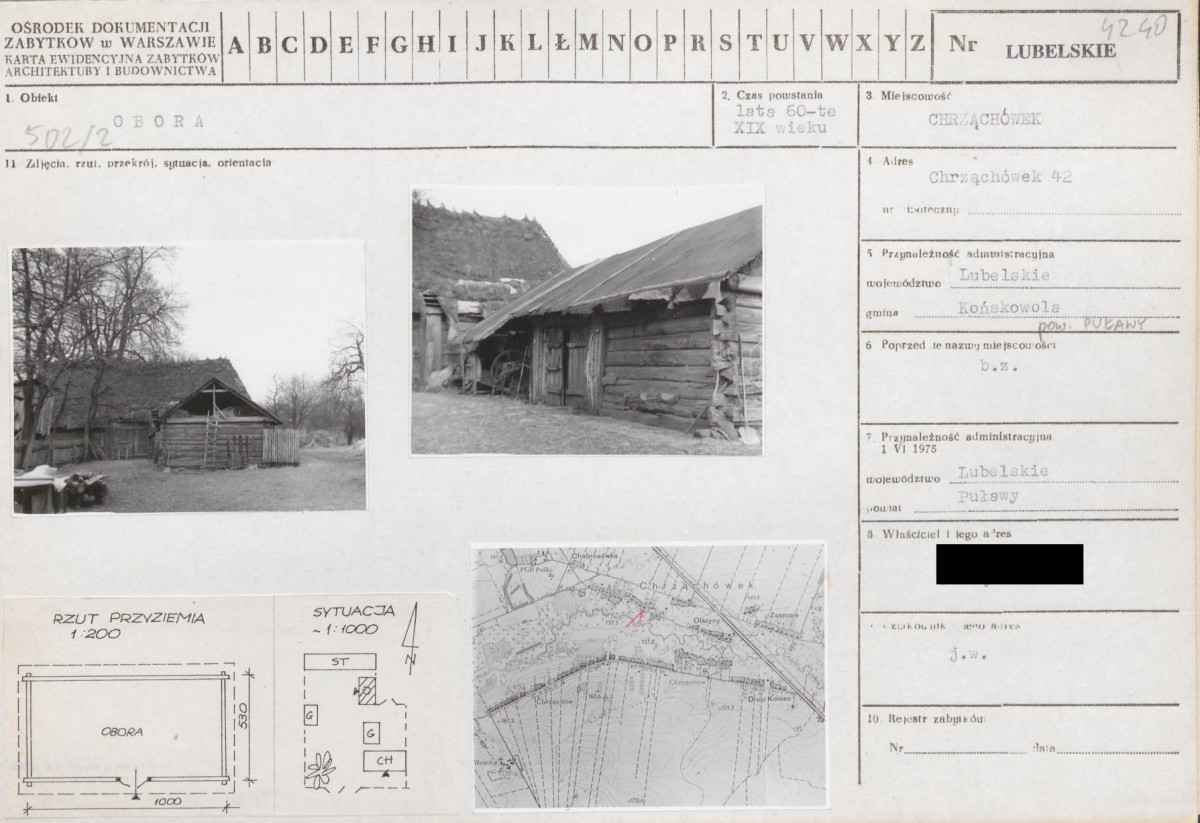 OŚRODEK DOKUMENTACJI
ZABYTKÓW w WARSZAWIE
KARTA EWIDENCYJNA ZABYTKÓW
ARCHITEKTURY I BUDOWNICTWA
A B C D E F G H I J K L Ł M N O P R S T U V W X Y Z
Nr LUBELSKIE
4240
1. Obiekt
502/2 OBORA
2. Czas powstania
lata 60-te
XIX wieku
3. Miejscowość
CHRZĄCHÓWEK
11 Zdjęcia, rzut, przekrój, sytuacja, orientacja
4. Adres
Chrząchówek 42
5 Przynależność administracyjna
województwo Lubelskie
gmina Końskowola
pow. PUŁAWY
6 nazwy miejscowości
b.z.
7. Przynależność administracyjna
1 VI 1975
województwo Lubelskie
powiat Puławy
8 Właściciel i jego adres
jego adres
j.w.
10. Rejestr zabytków
Nr data
RZUT PRZYZIEMIA
1:200
OBORA
530
1000
SYTUACJA
~1:1000
N
ST
G
G
CH
Chabrosówka
PGR Pulki
Chrząchówek
Olszyny
Zaszosie
Chrząchów
Chrząchów
Drugi Koniec